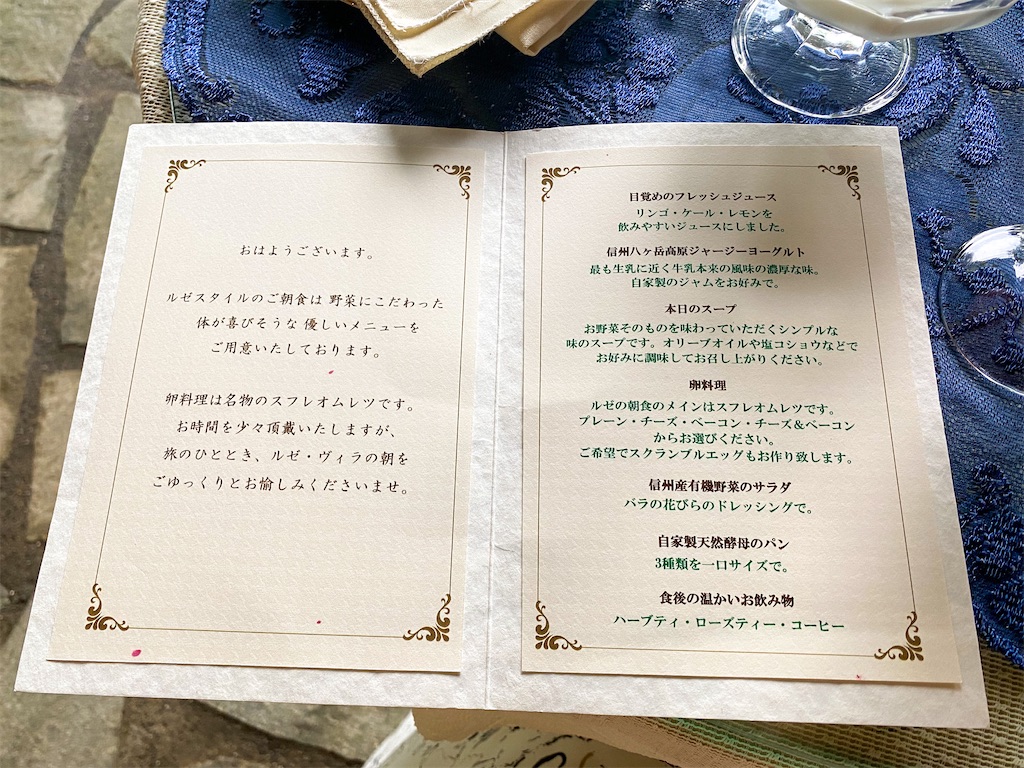 おはようございます。
ルゼスタイルのご朝食は 野菜にこだわった
体が喜びそうな 優しいメニューを
ご用意いたしております。
卵料理は名物のスフレオムレツです。
お時間を少々頂戴いたしますが、
旅のひととき、ルゼ・ヴィラの朝を
ごゆっくりとお愉しみくださいませ。
目覚めのフレッシュジュース
リンゴ・ケール・レモンを
飲みやすいジュースにしました。
信州八ヶ岳高原ジャージーヨーグルト
最も生乳に近く牛乳本来の風味の濃厚な味。
自家製のジャムをお好みで。
本日のスープ
お野菜そのものを味わっていただくシンプルな
味のスープです。オリーブオイルや塩コショウなどで
お好みに調味してお召し上がりください。
卵料理
ルゼの朝食のメインはスフレオムレツです。
プレーン・チーズ・ベーコン・チーズ＆ベーコン
からお選びください。
ご希望でスクランブルエッグもお作り致します。
信州産有機野菜のサラダ
バラの花びらのドレッシングで。
自家製天然酵母のパン
3種類を一口サイズで。
食後の温かいお飲み物
ハーブティ・ローズティー・コーヒー